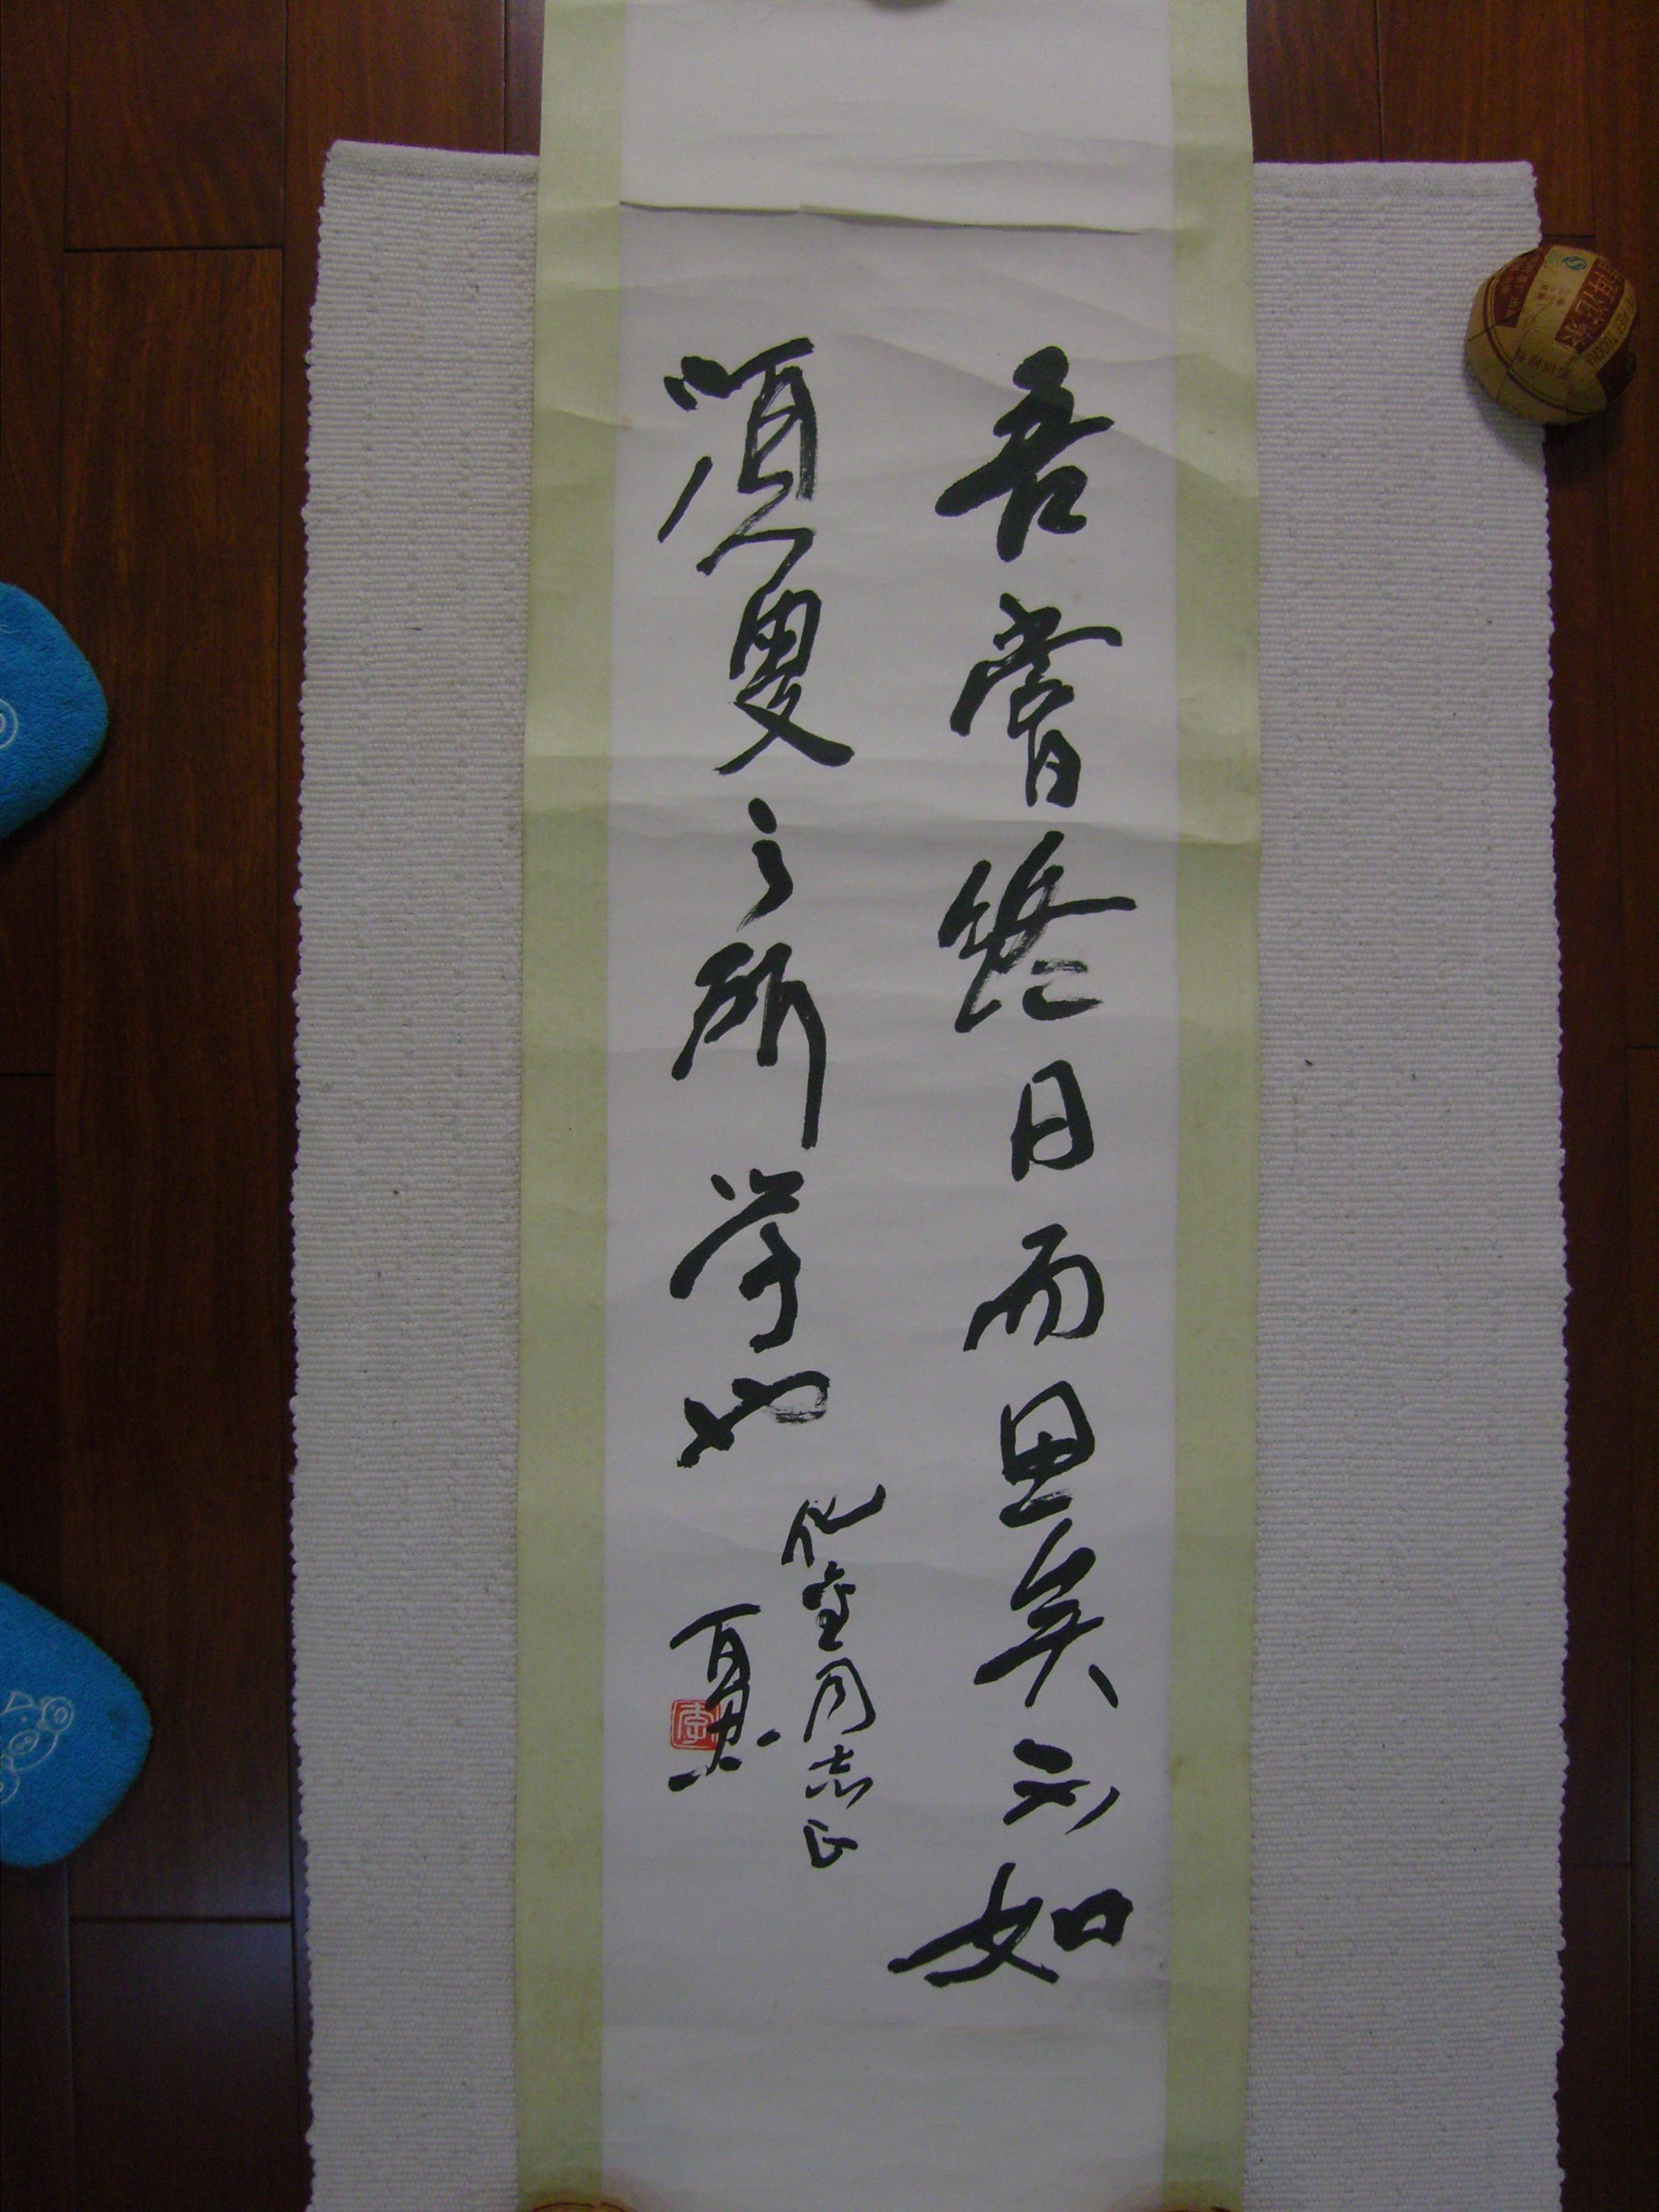 吾嘗終日而思矣不如
須臾之所学也
同志正